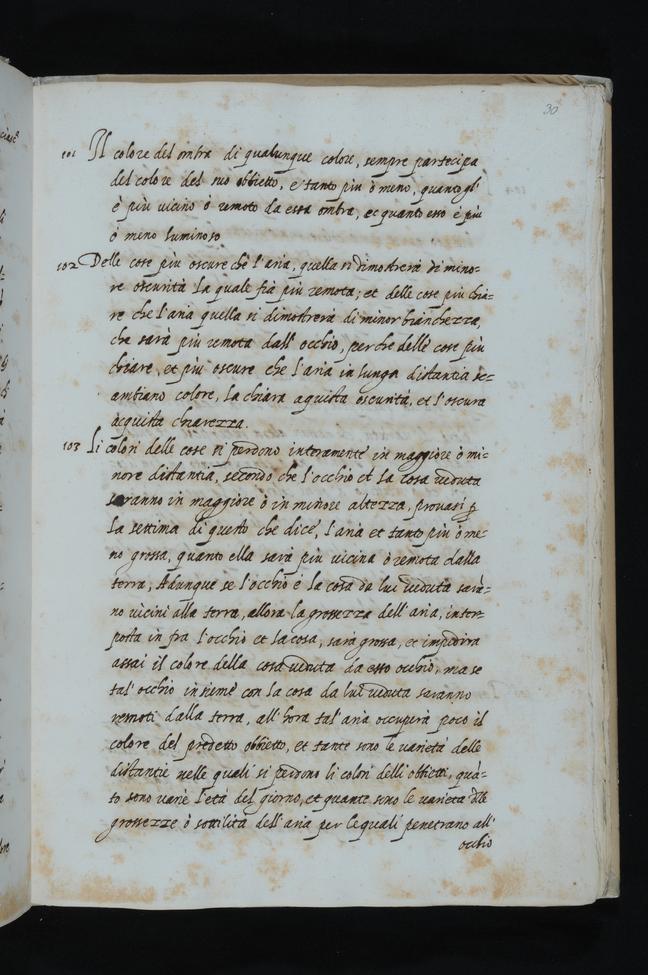 30
101 Il colore del ombra di qualunque colore, sempre partecipa
del colore del suo obbietto, e tanto più ò meno, quanto gl'
è più vicino ò remoto da essa ombra, et quanto esso è più
ò meno luminoso
102 Delle cose più oscure che l'aria, quella si dimostrerà di mino=
re oscurità la quale fia più remota; et delle cose più chia=
re che l'aria quella si dimostrerà di minor bianchezza,
che sarà più remota dall' occhio, perche delle cose più
chiare, et più oscure che l'aria in lunga distantia sc=
ambiano colore, la chiara aquista oscurità, et l'oscura
acquista chiarezza.
103 Li colori delle cose si perdono interamente in maggiore ò mi=
nore distantia, secondo che l'occhio et la cosa veduta
saranno in maggiore ò in minore altezza, provasi p
la settima di questo che dice, l'aria et tanto più ò me
no grossa, quanto ella sarà più vicina ò remota dalla
terra, Adunque se l'occhio e la cosa da lui veduta sarà=
no vicini alla terra, allora la grossezza dell'aria, inter=
posta in fra l'occhio et la cosa, sarà grossa, et impedirà
assai il colore della cosa veduta da esso occhio, ma se
tal' occhio insieme con la cosa da lui veduta saranno
remoti dalla terra, all'hora tal' aria occuperà poco il
colore del predetto obbietto, et tante sono le varietà delle
distantie nelle quali si perdono li colori delli obbietti, quà=
to sono varie l'età del giorno, et quante sono le varietà dlle
grossezze ò sottilità dell'aria per le quali penetrano all'
occhio